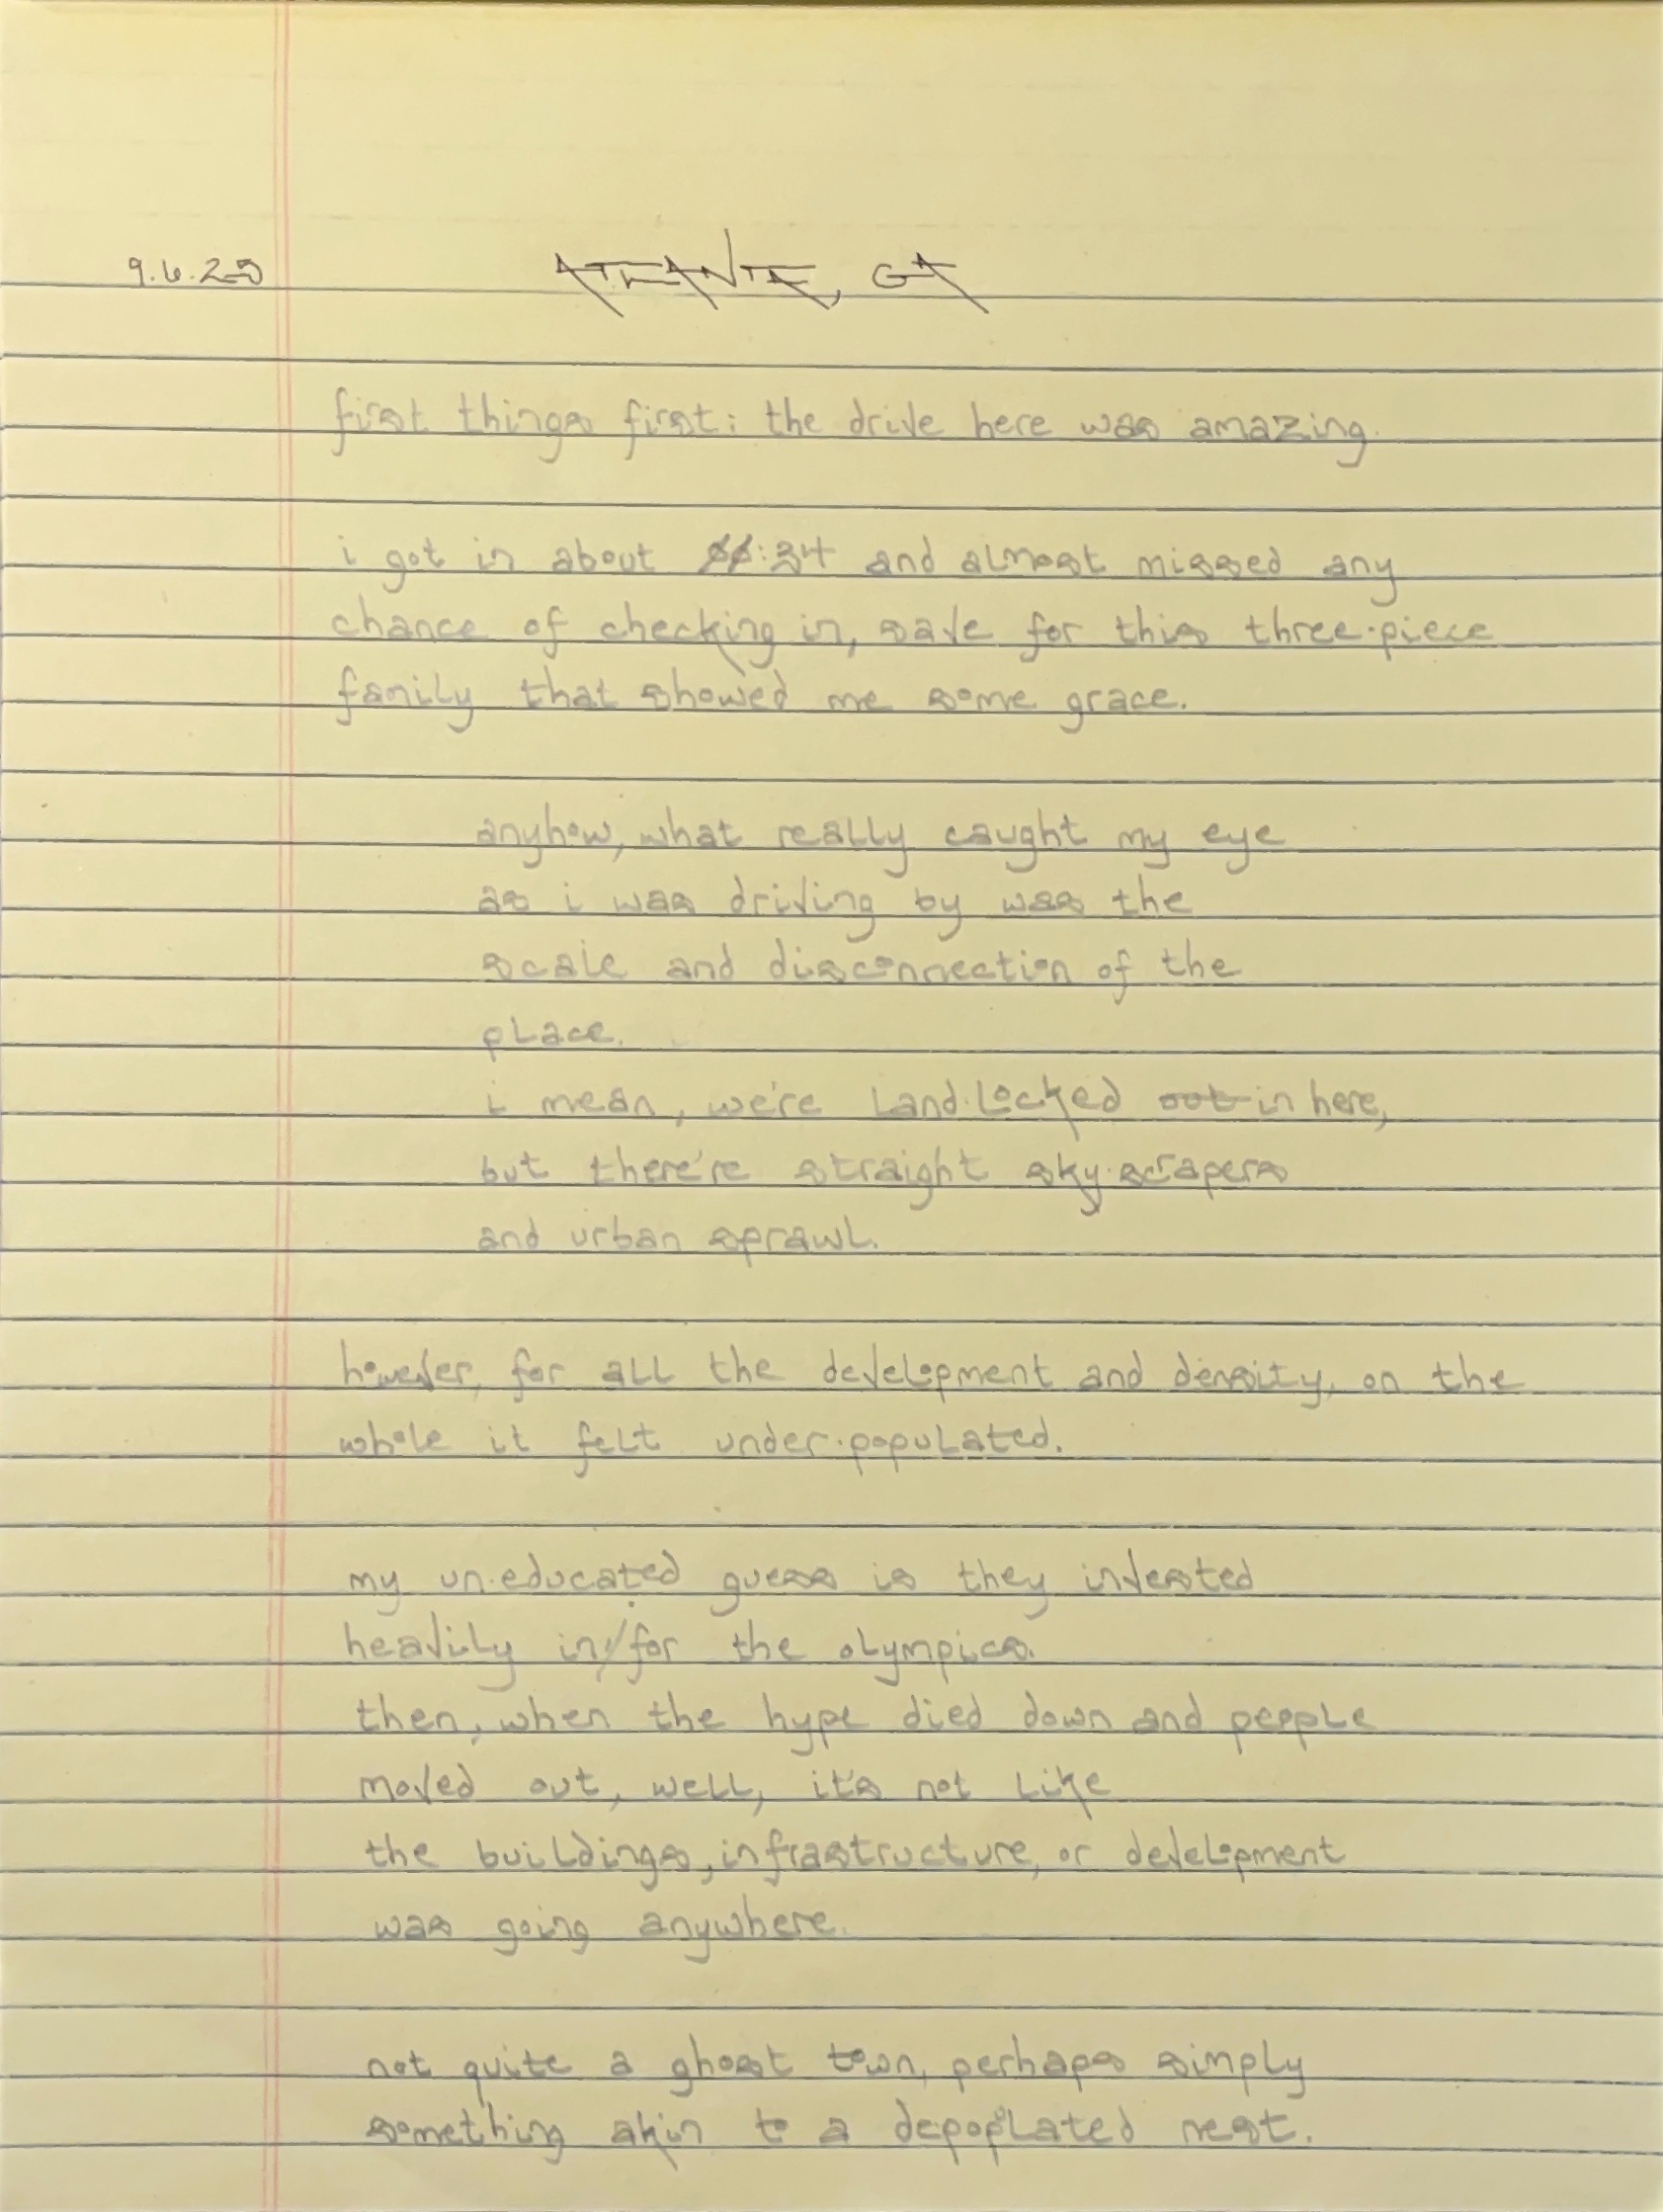 9.6.25 ATLANTA, GA
first things first: the drive here was amazing.
i got in about 00:34 and almost missed any
chance of checking in, save for this three·piece
family that showed me some grace.
anyhow, what really caught my eye
as i was driving by was the
scale and disconnection of the
place.
i mean, we're land·locked out in here,
but there're straight sky·scrapers
and urban sprawl.
however, for all the development and density, on the
whole it felt under·populated.
my un·educated guess is they invested
heavily in/for the olympics.
then, when the hype died down and people
moved out, well, it's not like
the buildings, infrastructure, or development
was going anywhere.
not quite a ghost town, perhaps simply
something akin to a depoplated nest.